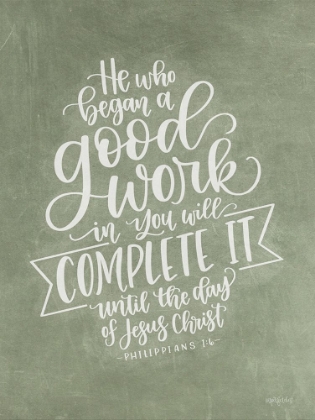 He who
began a
good
work
in you will
COMPLETE IT
until the day
of Jesus Christ
-PHILIPPIANS 1:6-